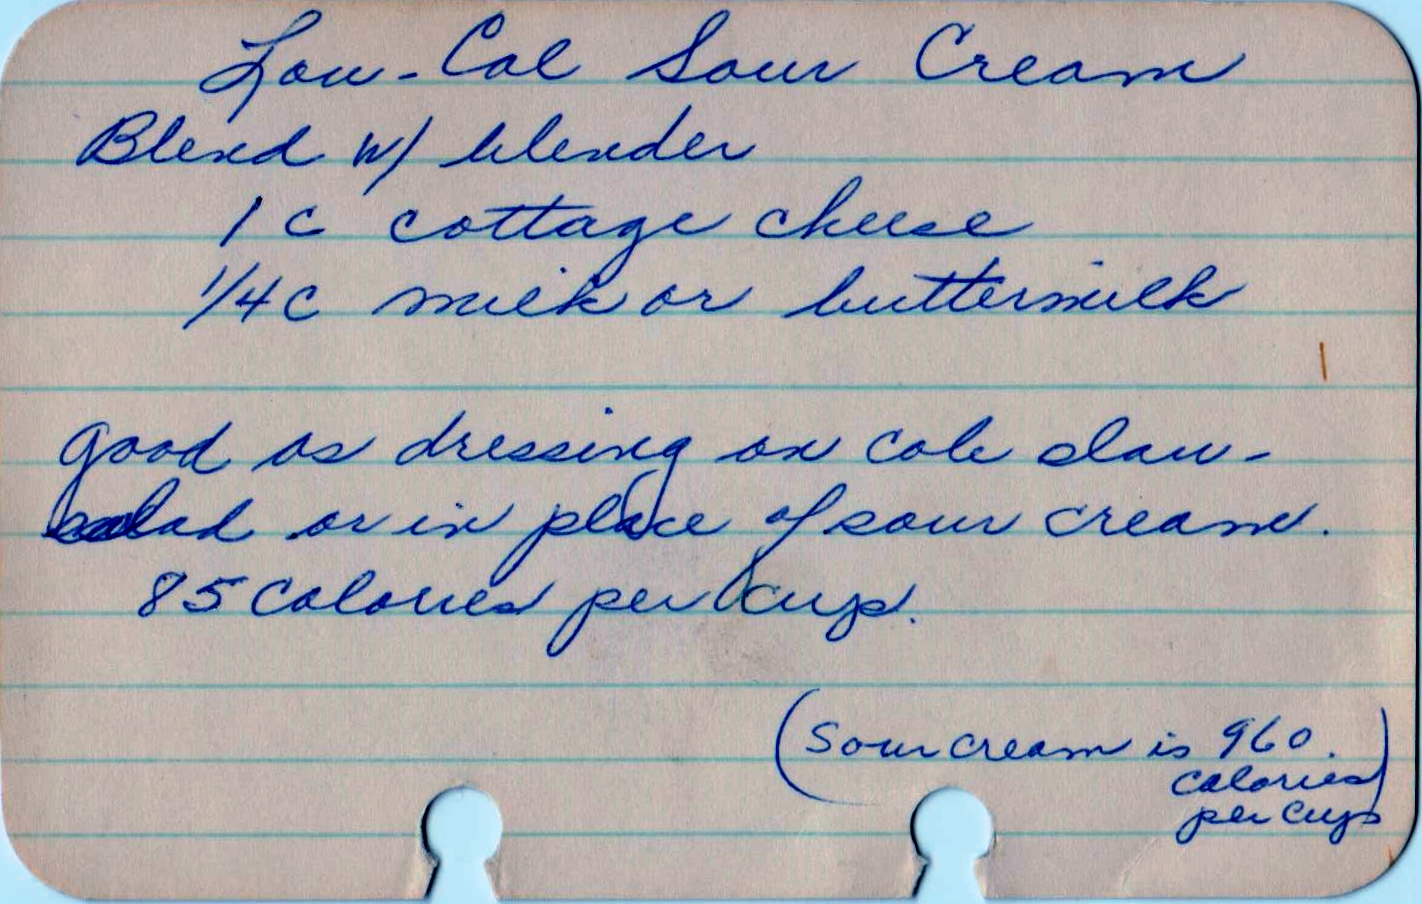 Low-Cal Sour Cream
Blend w/ blender
1 C cottage cheese
1/4 C milk or buttermilk
good as dressing on cole slaw-
salad or in place of sour cream.
85 Calories per cup.
(Sour cream is 960
calories
per cup)